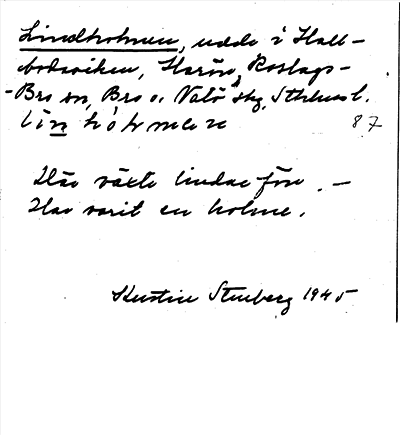 Lindholmen, udde i Hall-
bodaviken, Harön, Roslags-
-Bro sn, Bro o. Vätö skg, Sthlms l.
lìnhó̀lmen 87
Här växte lindar förr. —
Har varit en holme.
Kerstin Stenberg 1945